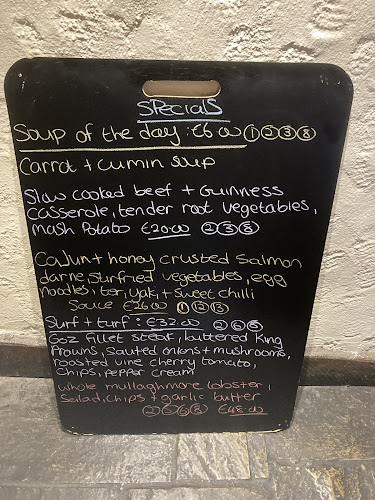 SPecialS
Soup of the day : €6.00 ① ② ③ ⑧
Carrot + cumin soup
Slow cooked beef + Guinness
casserole, tender root vegetables,
mash Potato €20.00 ② ③ ⑧
Cajun + honey crusted Salmon
darne, Stirfried vegetables, egg
noodles, teriyaki + Sweet chilli
Sauce €26.00 ① ⑫ ⑬
Surf + turf : €32.00 ② ⑥ ⑧
6oz fillet steak, buttered King
Prawns, Sauted onions + mushrooms,
roasted vine cherry tomato,
Chips, pepper cream
Whole mullaghmore lobster,
Salad, Chips + garlic butter
② ⑤ ⑥ ⑧ €48.00